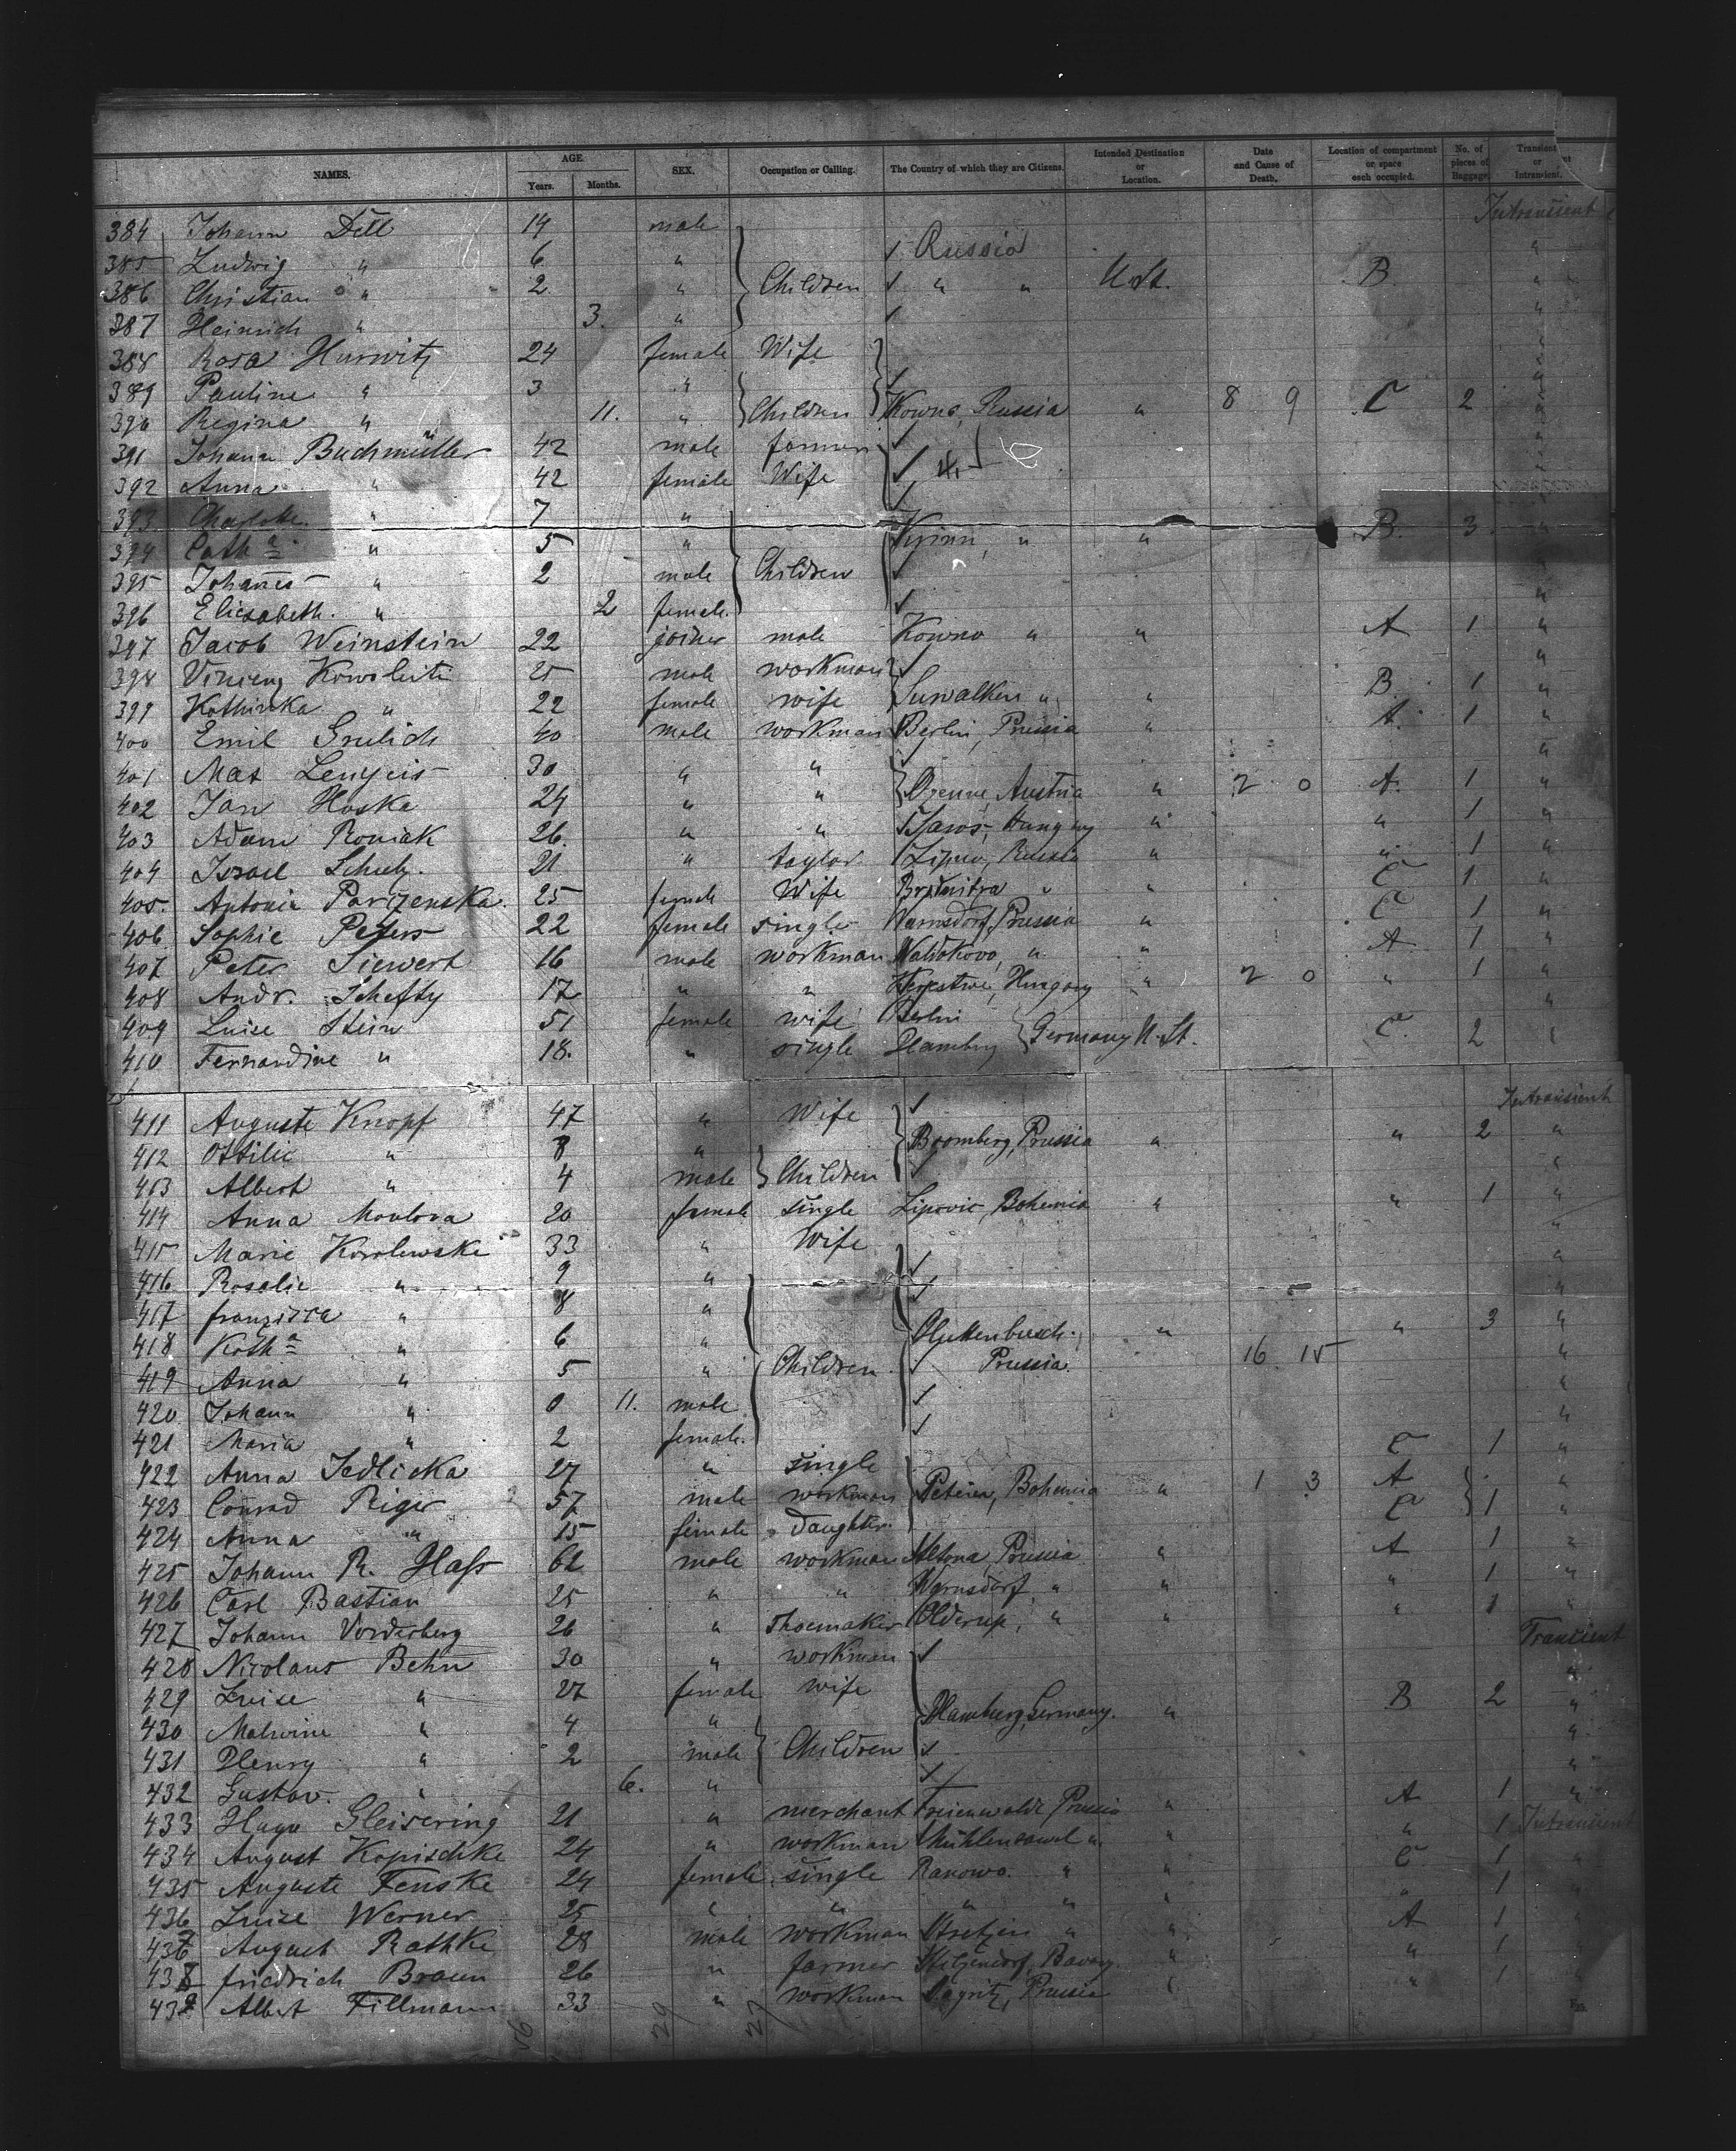 NAMES. AGE Years. Months. SEX. Occupation or Calling. The Country of which they are Citizens. Intended Destination or Location. Date and Cause of Death. Location of compartment or space each occupied. No. of pieces of Baggage. Transient or Intransient.
384 Johann Dell 14 male Intransient
385 Ludwig " 6 " Russia "
386 Christian " 2 " Children " " U. St. B. "
387 Heinrich " 3. " "
388 Rosa Hurwitz 24 female Wife "
389 Pauline " 3 " "
390 Regina " 11. " Children Kowno, Russia " 8 9 C 2 "
391 Johann Buchmüller 42 male farmer "
392 Anna " 42 female Wife "
393 Charlotte " 7 " "
394 Cath a " 5 " " " B. 3 "
395 Johannes " 2 male Children "
396 Elisabeth. " 2 female. "
397 Jacob Weinstein 22 joiner male Kowno " " A 1 "
398 25 male workman "
399 " 22 female wife Suwalken " " B. 1 "
400 Emil 40 male workman Berlin, Prussia " A. 1 "
401 Max 30 " " "
402 Jan Hoska 24 " " Austria " 2 0 A. 1 "
403 Adam Roniak 26. " " Hungary " " 1 "
404 Israel 21 " taylor Lipno, Russia " " 1 "
405. Antonie 25 female Wife " " C 1. "
406. Sophie Peters 22 female single Warnsdorf, Prussia " C 1 "
407 Peter Siewert 16 male workman " " A 1 "
408 Andr. Schefty 17 " " Hungary " 2 0 " 1 "
409 Luise Stein 51 female wife Berlin "
410 Fernandine " 18. " single Hamburg Germany U. St. C. 2 "
411 Auguste Knopf 47 " Wife Intransient
412 Ottilie " 8 " Bromberg, Prussia " " 2 "
413 Albert " 4 male Children "
414 Anna 20 female single Lipovic, Bohemia " " 1 "
415 Marie Korolewske 33 " Wife "
416 Rosalie " 9 " "
417 franziska " 8 " "
418 Kath a " 6 " " " 3 "
419 Anna " 5 " Children Prussia. 16 15 "
420 Johann " 0 11. male "
421 Maria " 2 female. "
422 Anna Jedlicka 27 " single C 1 "
423 Conrad Riger 57 male workman Bohemia " 1 3 A "
424 Anna " 15 female daughter C 1 "
425 Johann R. Hass 62 male workman Altona, Prussia " A 1 "
426 Carl Bastian 25 " " Warnsdorf, " " " 1 "
427 Johann Vorderberg 26 " shoemaker Olderup, " " " 1 "
428 Nicolaus Behn 30 " workman Transient
429 Luise " 27 female wife "
430 Malwine " 4 " Hamburg, Germany. " B 2 "
431 Henry " 2 male Children "
432 Gustav. " 6. " "
433 Hugo Gleisering 21 " merchant Freienwalde, Prussia " A 1 "
434 August Kopischke 24 " workman " " " 1 Intransient
435 Auguste Fenske 24 female single Ranowo. " " C 1 "
436 Luise Werner 25 " " " " " " 1 "
437 August Rathke 28 male workman " " A 1 "
438 friedrich Braun 26 " farmer " " 1 "
439 Albert Fillmann 33 " workman Prussia " " 1 "
29 27